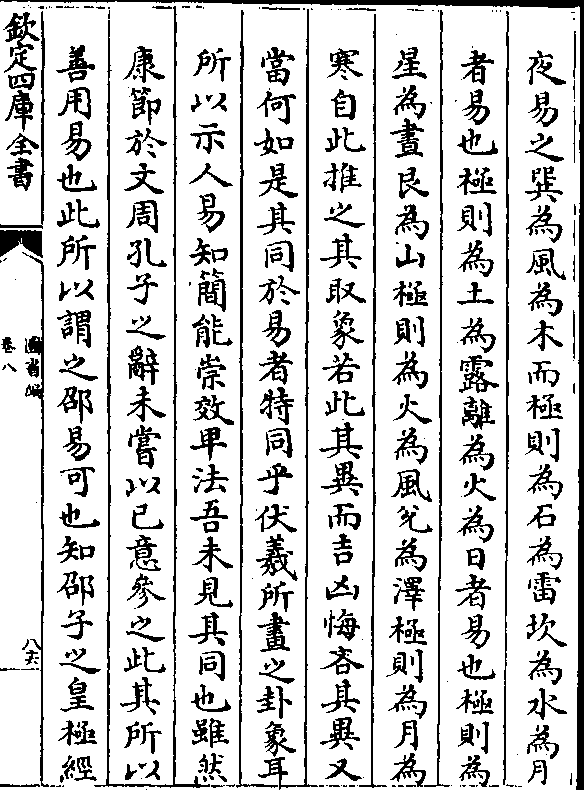 夜易之巽為風為木而極則為石為雷坎為水為月
者易也極則為土為露離為火為日者易也極則為
星為晝艮為山極則為火為風兊為澤極則為月為
寒自此推之其取象若此其異而吉凶悔吝其異又
當何如是其同於易者特同乎伏羲所畫之卦象耳
所以示人易知簡能崇效卑法吾未見其同也雖然
康節於文周孔子之辭未嘗以已意參之此其所以
善用易也此所以謂之邵易可也知邵子之皇極經
欽定四庫全書
圖書編
卷八